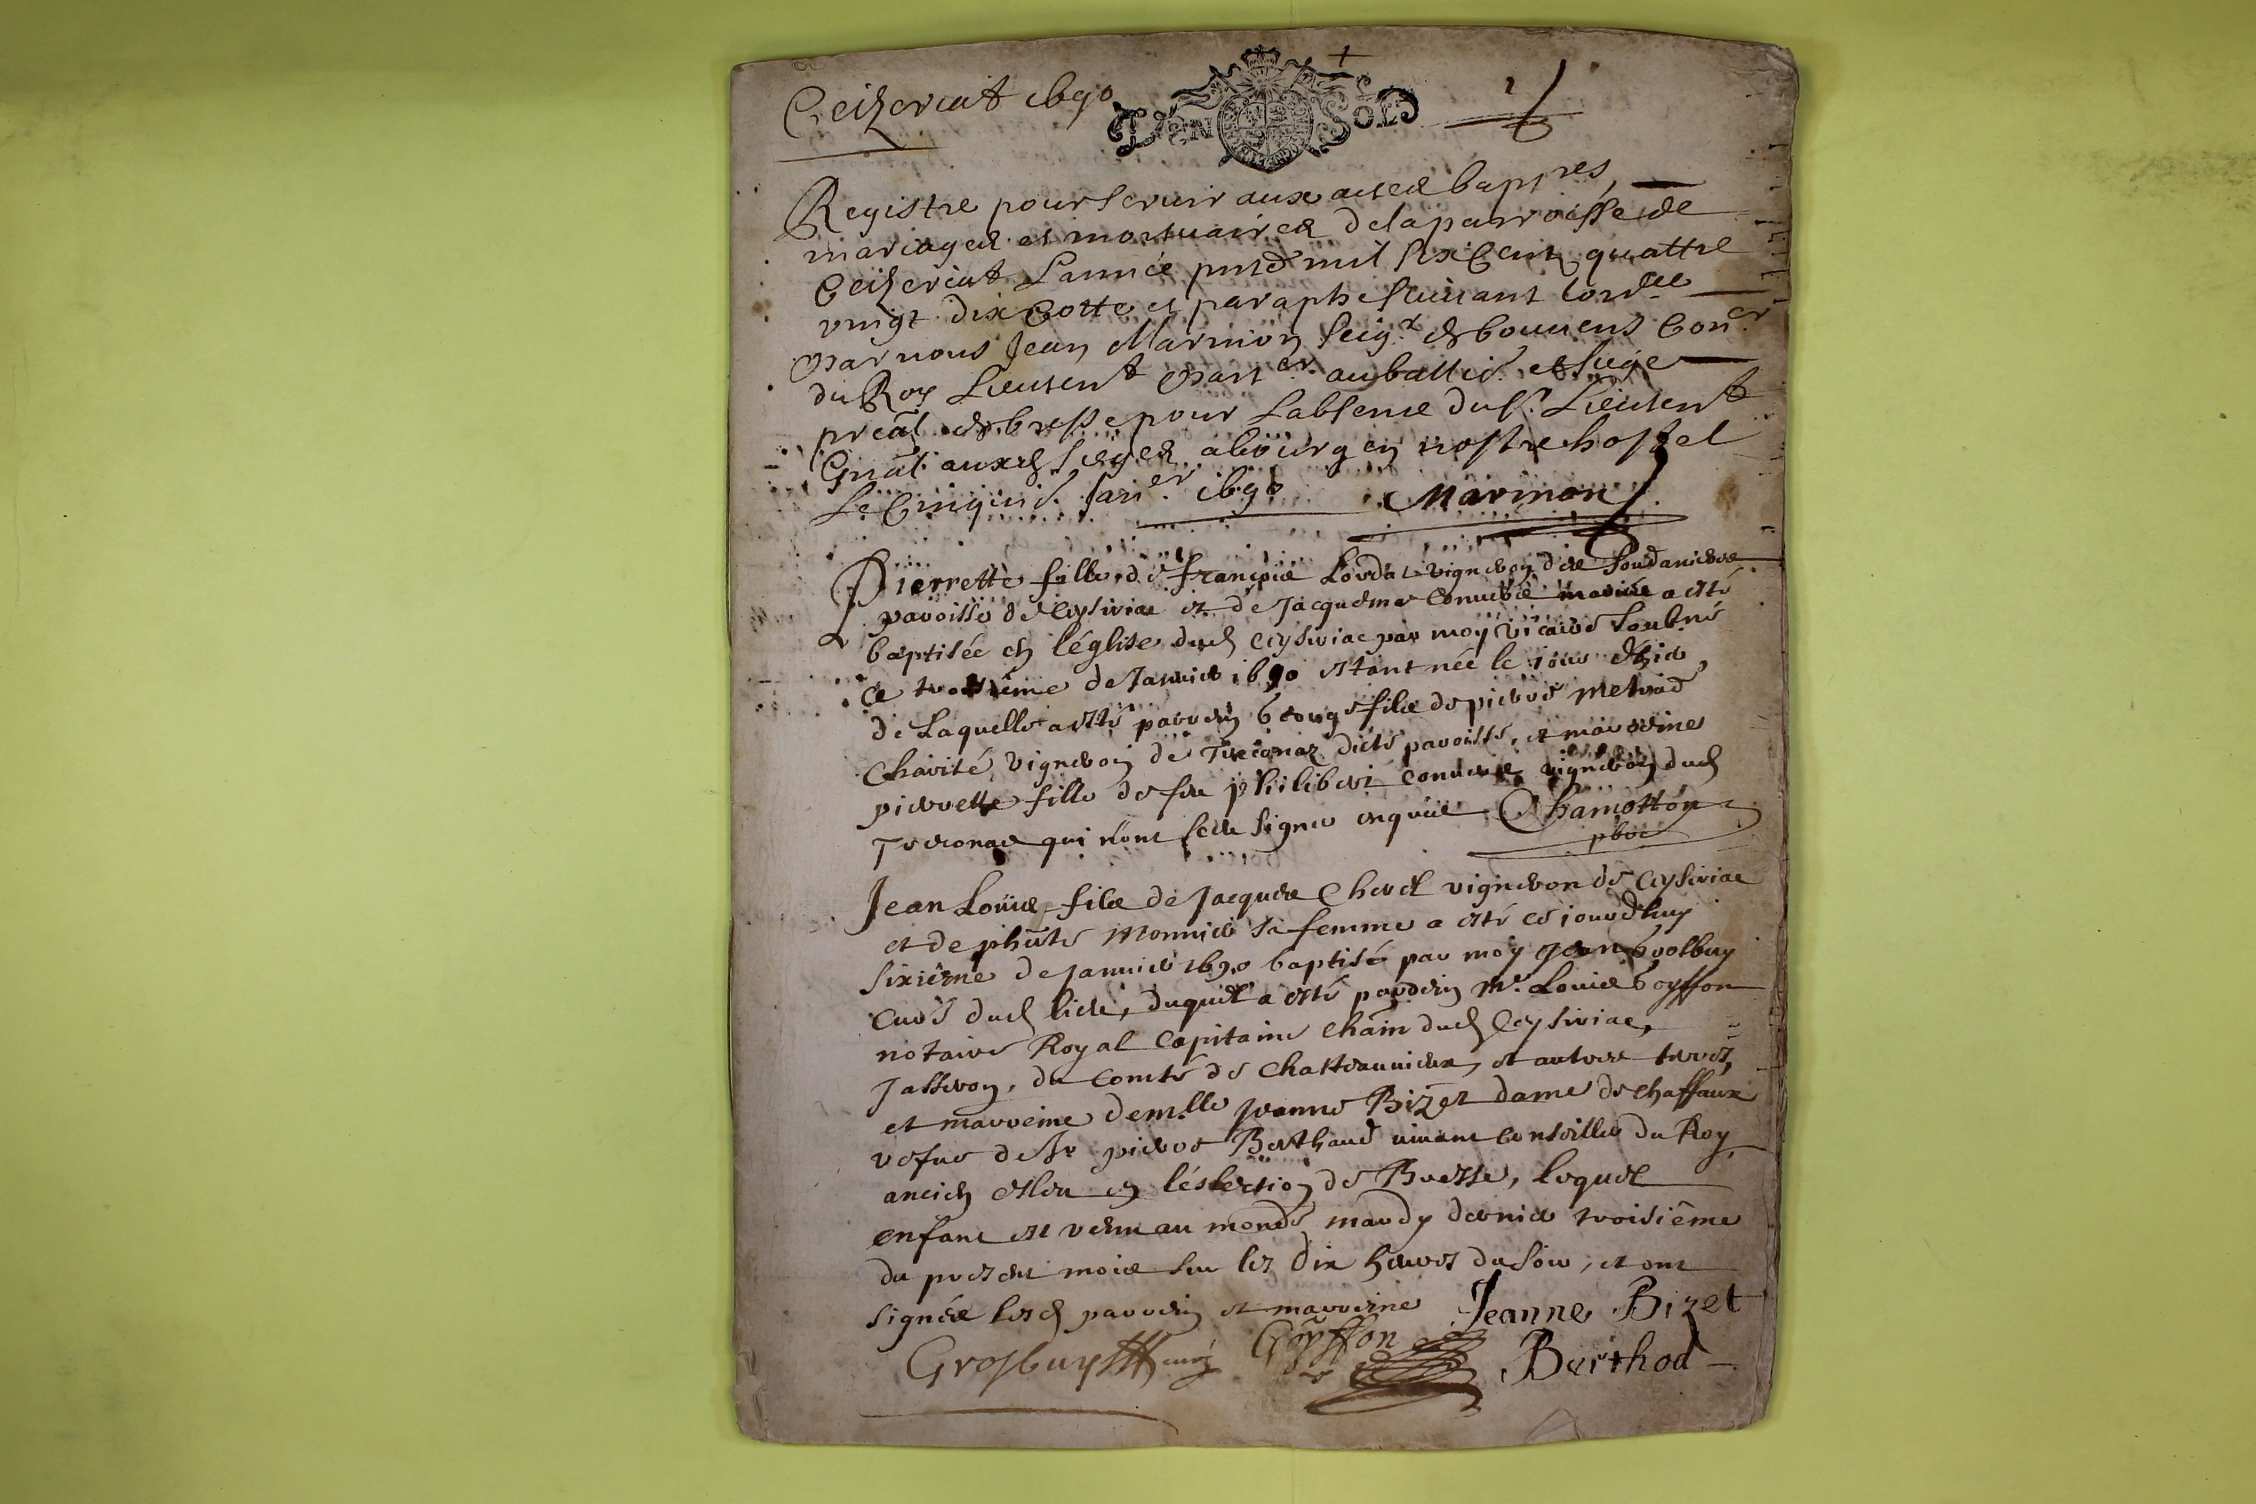 Ceizeriat 1690
UN SOL
Registre pour servir aux actes bapt.res,
mariages et mortuaires de la parroisse de
Ceizeriat L'année pnte mil six Cent quattre
vingt dix Cotte et paraphe suivant lord.ce
par nous Jean Marmon seig.r de bouvens Con.er
du Roy Lieutent part.er au balli.e et siege
preal de bresse pour L'absence du sr. Lieutent
Gnal auxd sieges a bourg en nostre hostel
Le Cinqui.e Jan.er 1690 Marmon
Pierrette fille de françois vigneron
paroisse de Ceyseriac et de Jacquema a esté
baptisée en l'église dud Ceyseriac par moy vicaire soubs.né
Ce troisième de Janvier 1690 estant née le jour d'hier,
de Laquelle a esté parrein fils de pierre
Charité, vigneron de dicte paroisse, et marreine
pierrette fille de feu philibert vigneron dud
qui n'ont sceu signer enquis Chamotton
pbre
Jean Louis fils de Jacques vigneron de Ceyseriac
et de phūte Monnier sa femme a esté ce jourd'huy
sixième de janvier 1690 baptisé par moy Jean Grosbuy
curé dud lieu, duquel a esté parrein Mr. Louis Goyffon
notaire Royal Capitaine chāin dud Ceyseriac,
Jasseron, du Comté de Chatteauvieux, et autres terres,
et marreine demlle jeanne Bizet dame de chaffaux
vefve de Sr pierre Berthaud vivant Conseiller du Roy
ancien esleu en l'éslection de Bresse, lequel
enfant est venu au monde mardy dernier troisième
du present mois sur les dix heures du soir, et ont
signés lesd parrein et marreine Jeanne Bizet
Grosbuy curé Goyffon Berthod